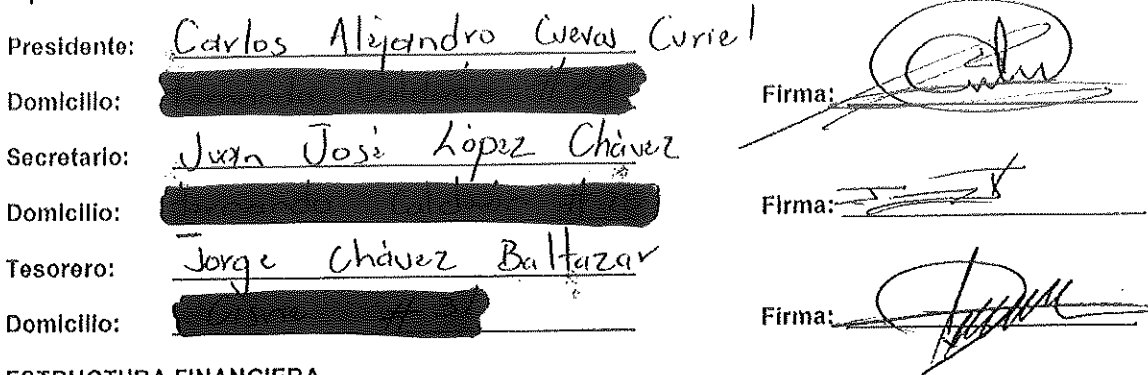 Presidente: Carlos Alejandro Cuevas Curiel
Domicilio: Firma:
Secretario: Juan José López Chávez
Domicilio: Firma:
Tesorero: Jorge Chávez Baltazar
Domicilio: Firma:
ESTRUCTURA FINANCIERA